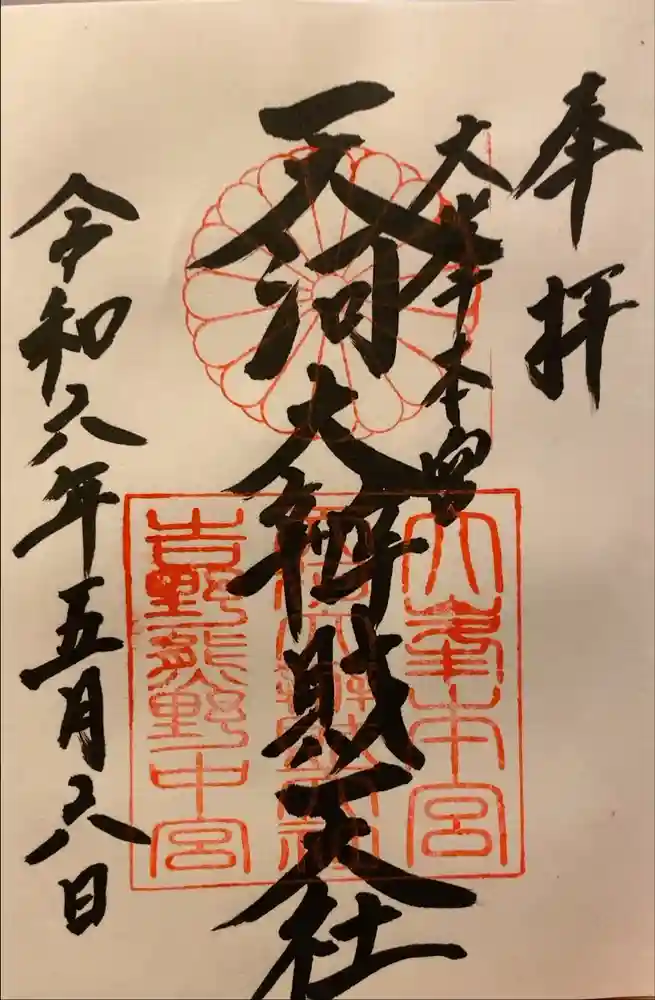 奉拝
大峯本宮
天河大辨財天社
令和六年五月六日
大峯本宮
天河大辨財天社
吉野熊野中宮